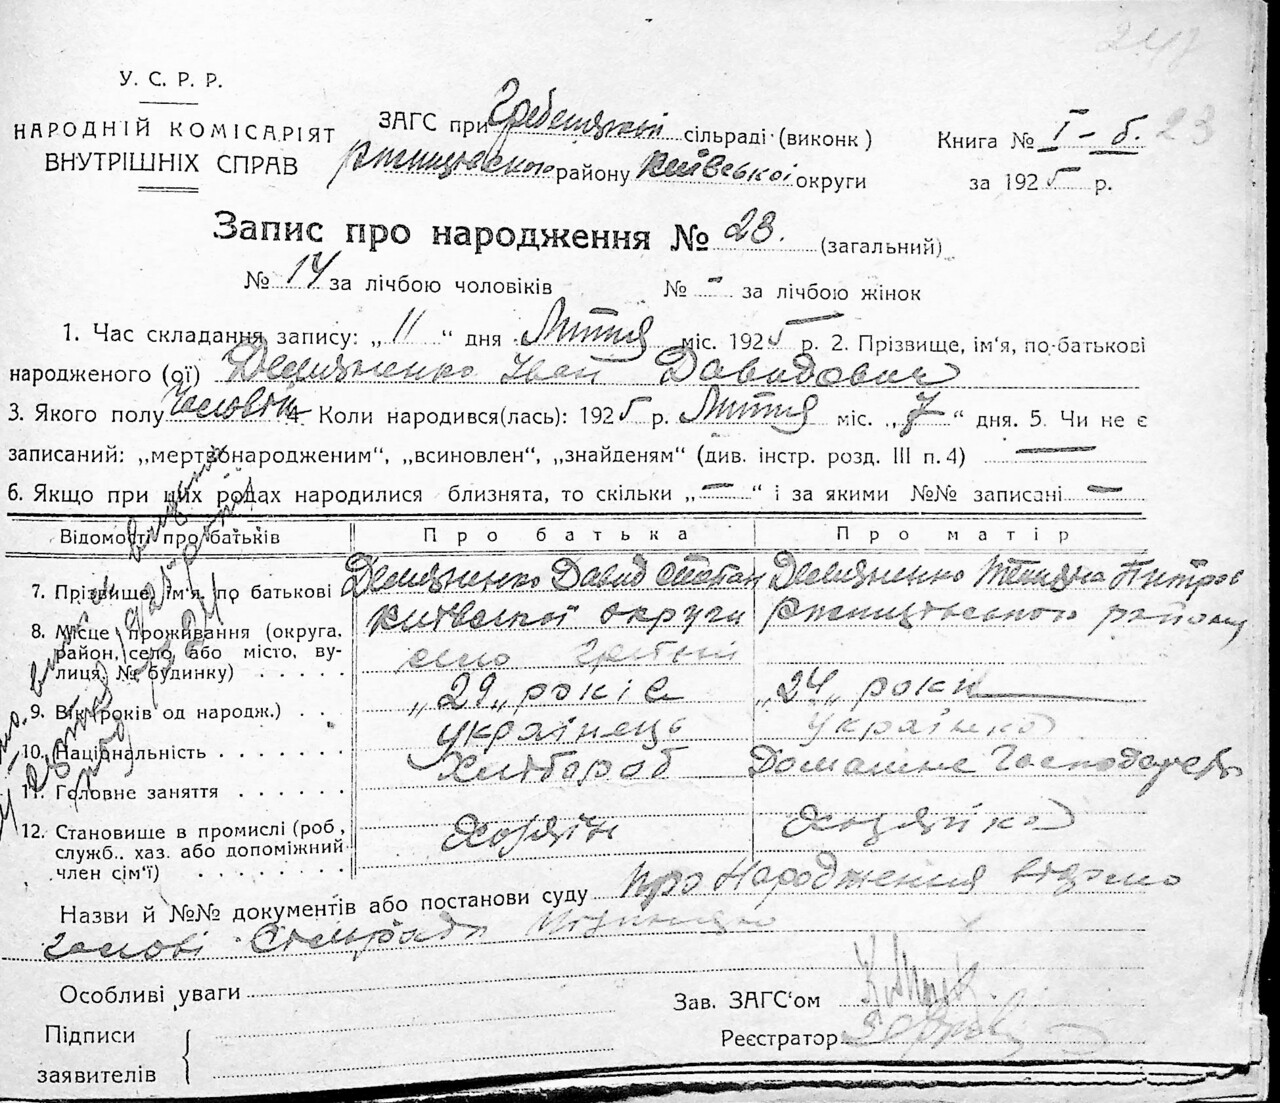 23
У. С. Р. Р.
НАРОДНІЙ КОМІСАРІЯТ
ВНУТРІШНІХ СПРАВ
ЗАГС при Гребенецькій сільраді (виконк)
Ржищівського району Київської округи
Книга № I - б.
за 1925 р.
Запис про народження № 23. (загальний)
№ 14 за лічбою чоловіків № - за лічбою жінок
1. Час складання запису: „ 11 “ дня Липня міс. 1925 р. 2. Прізвище, ім'я, по-батькові
народженого (ої) Демяненко Іван Давидович
3. Якого полу Чоловік 4. Коли народився(лась): 1925 р. Липня міс. „ 7 “ дня. 5. Чи не є
записаний: „мертвонародженим“, „всиновлен“, „знайденям“ (див. інстр. розд. III п. 4) —
6. Якщо при цих родах народилися близнята, то скільки „ — “ і за якими №№ записані —
Відомості про батьків Про батька Про матір
7. Прізвище, ім'я, по батькові Демяненко Давид Степан Демяненко Тетяна Питров
8. Місце проживання (округа, район, село або місто, вулиця, № будинку) Київської округи Ржищівського району
село
9. Вік (років од народж.) „29„ років „24„ роки
10. Національність українець українка
11. Головне заняття Хлібороб Домашнє Господарство
12. Становище в промислі (роб., служб., хаз. або допоміжний член сім'ї) Хозяїн Хозяйка
Назви й №№ документів або постанови суду про Народження відомо
голові Сільради
Особливі уваги
Зав. ЗАГС'ом
Підписи
заявителів
Реєстратор